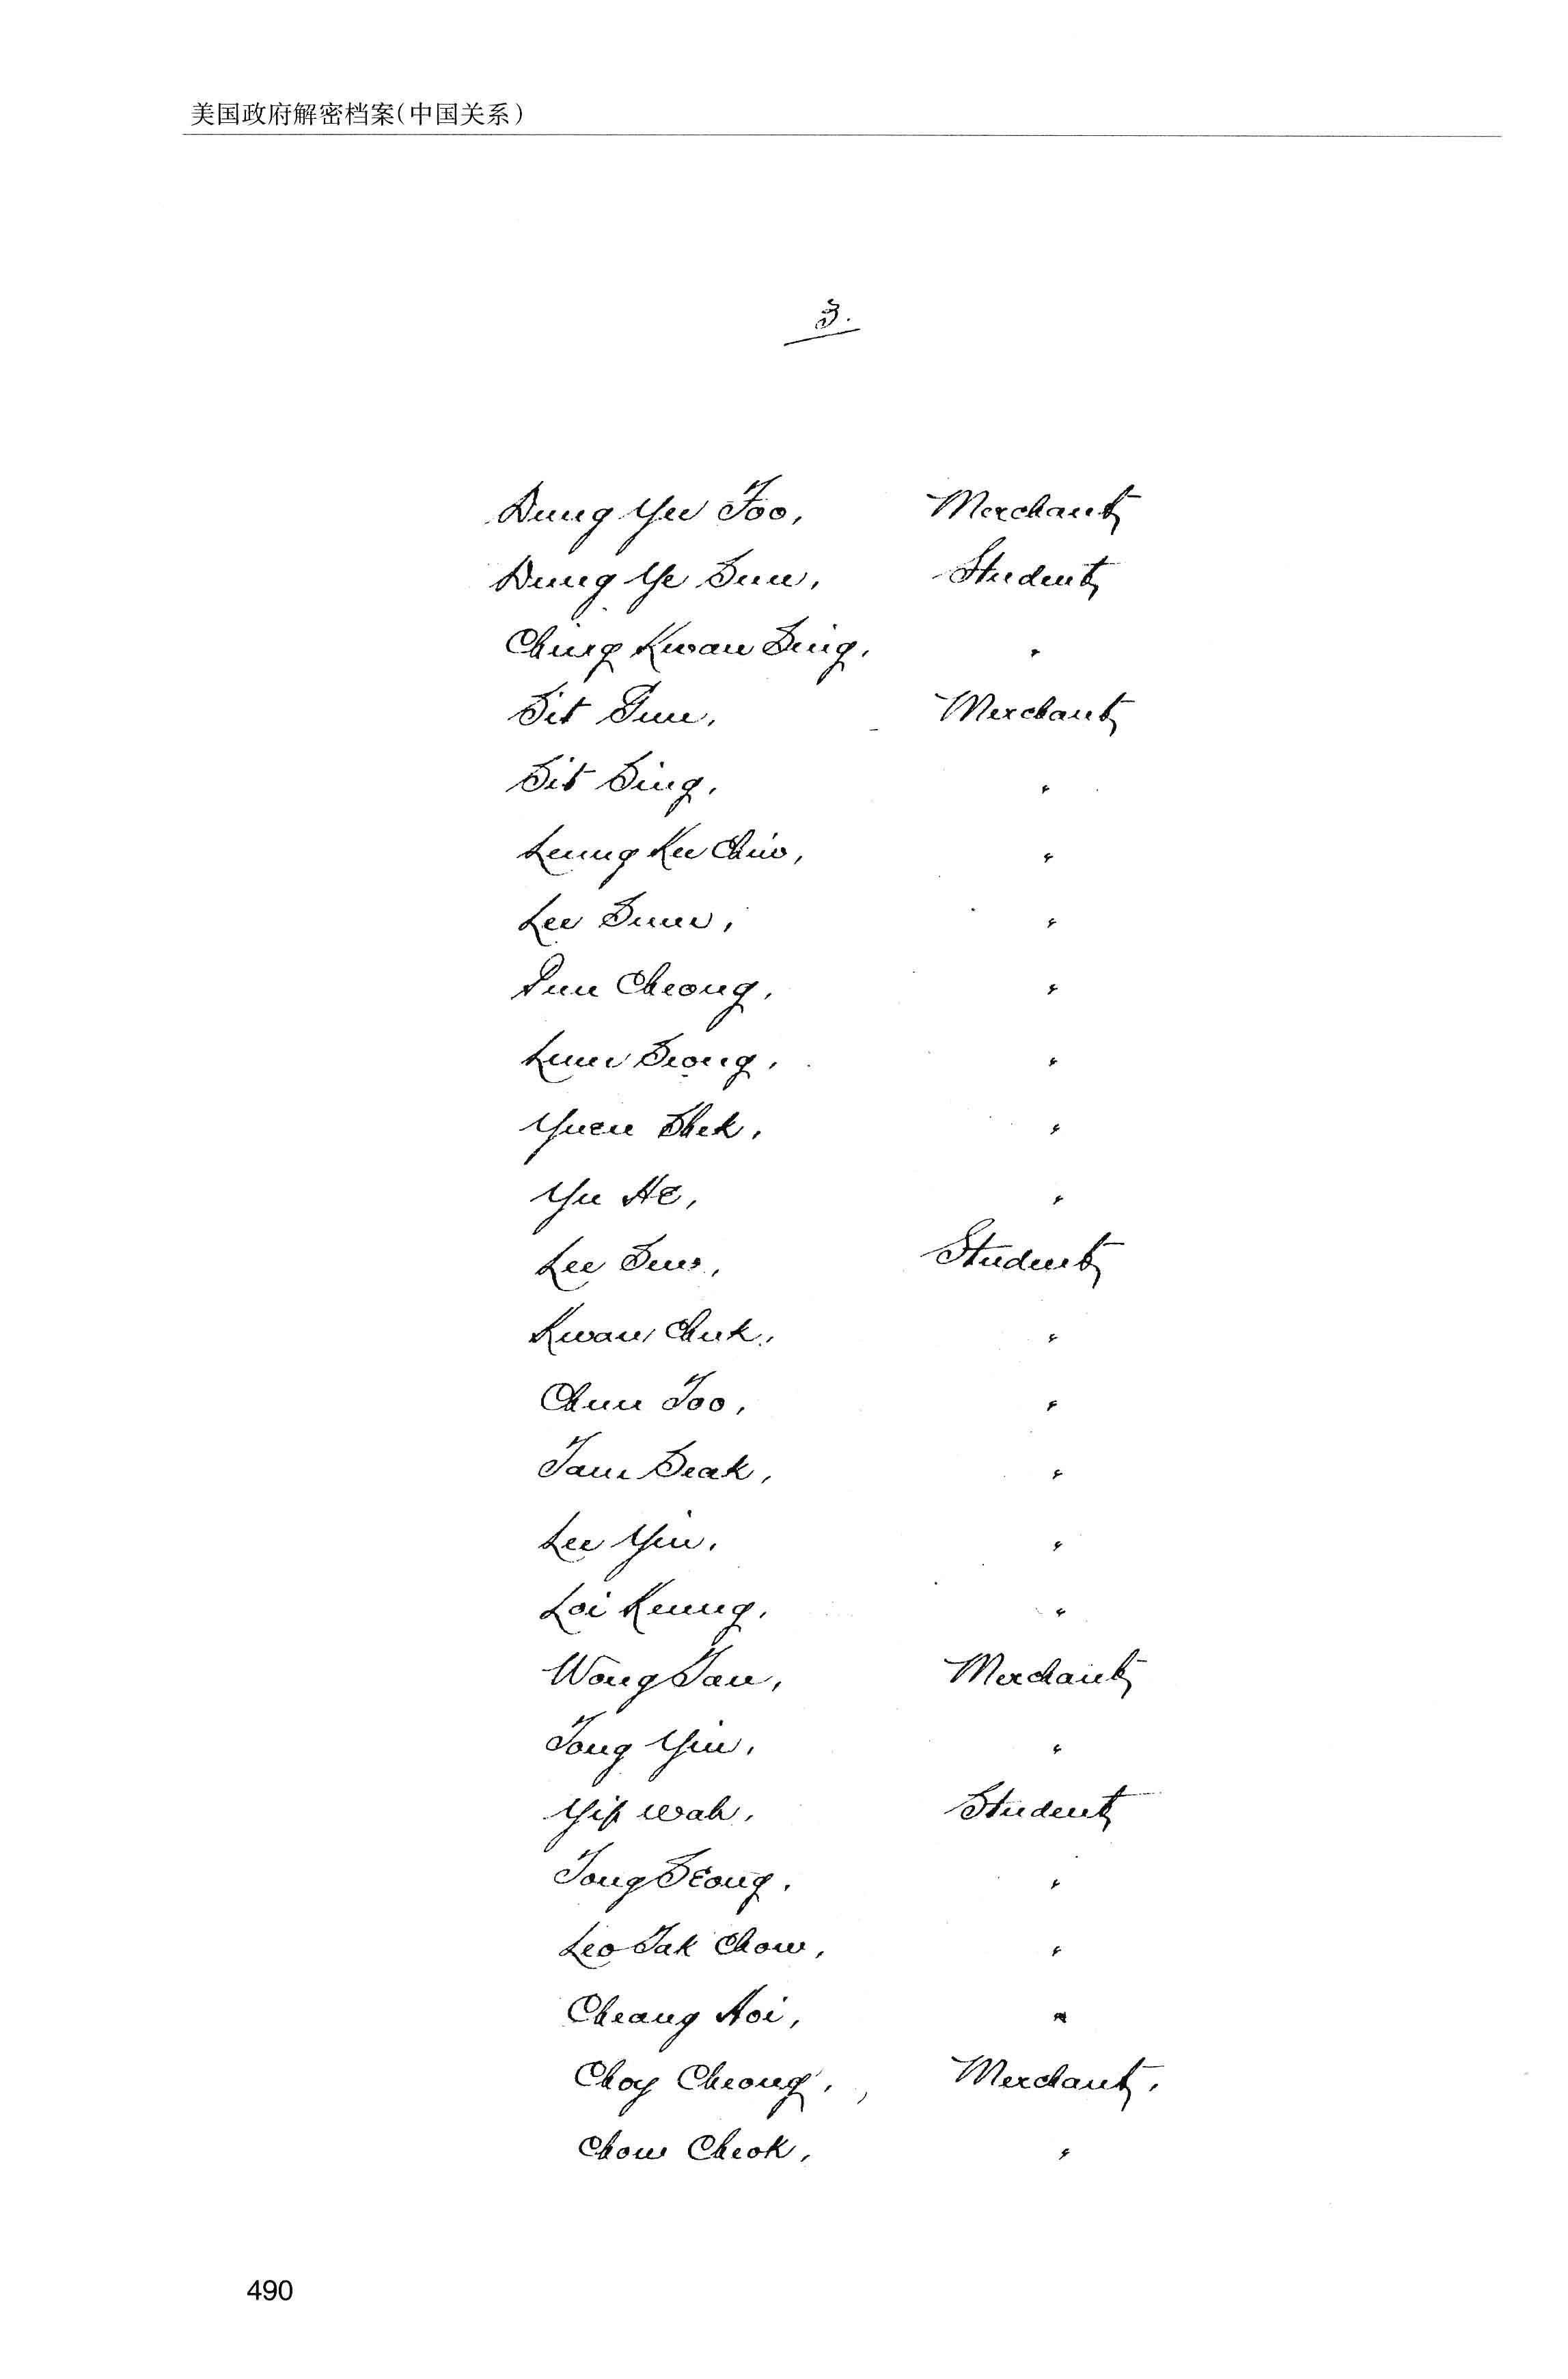 美国政府解密档案(中国关系)
3.
Dung Yee Foo, Merchant
Dung Ye Sun, Student
Ching Kwan Sing, "
Sit Sun, Merchant
Sit Sing, "
Leung Kee Chiw, "
Lee Sum, "
Pun Cheong, "
Lum Seong, "
Yuen Shek, "
Yu He, "
Lee Sew, Student
Kwan Chuk, "
Chun Foo, "
Tam Seak, "
Lee Yin, "
Loi Keung, "
Wong Tan, Merchant
Tong Yin, "
Yip Wah, Student
Tong Seong, "
Leo Tak Chow, "
Cheang Hoi, "
Choy Cheong, Merchant.
Chow Cheok, "
490